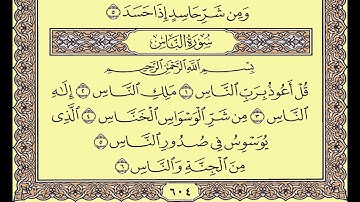 وَمِن شَرِّ حَاسِدٍ إِذَا حَسَدَ ٥
سُورَةُ النَّاسِ
بِسْمِ اللَّهِ الرَّحْمَٰنِ الرَّحِيمِ
قُلْ أَعُوذُ بِرَبِّ النَّاسِ ١ مَلِكِ النَّاسِ ٢ إِلَٰهِ
النَّاسِ ٣ مِن شَرِّ الْوَسْوَاسِ الْخَنَّاسِ ٤ الَّذِي
يُوَسْوِسُ فِي صُدُورِ النَّاسِ ٥
مِنَ الْجِنَّةِ وَالنَّاسِ ٦
٦٠٤